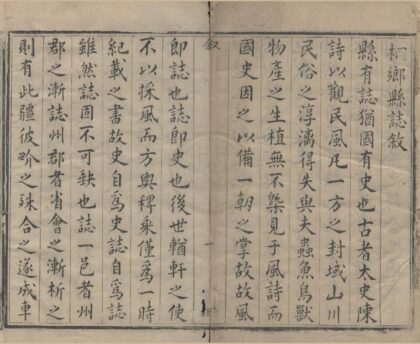 桐鄉縣誌敘
縣有誌猶國有史也古者太史陳
詩以觀民風凡一方之封域山川
民俗之淳漓得失與夫蟲魚鳥獸
物產之生植無不槩見于風詩而
國史因之以備一朝之掌故故風
敘
一
即誌也誌即史也後世輶軒之使
不以採風而方輿稗乘僅爲一時
紀載之書故史自爲史誌自爲誌
雖然誌固不可缺也誌一邑者州
郡之漸誌州郡者省會之漸析之
則有此疆彼畍之殊合之遂成車